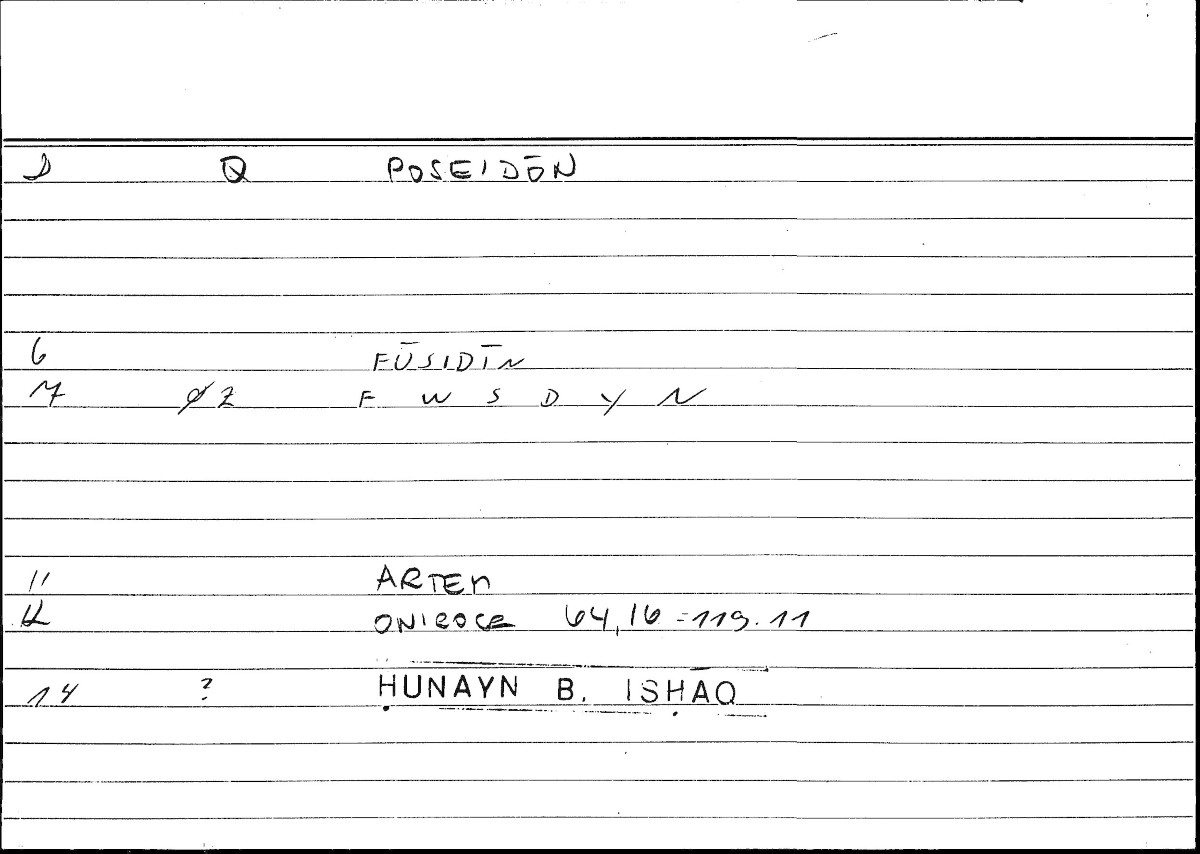 1 Q POSEIDŌN
6 FŪSIDĪN
7 ØZ F W S D Y N
11 ARTEM
12 ONIROCR 64,16 = 119.11
14 ? ḤUNAYN B. ISḤĀQ